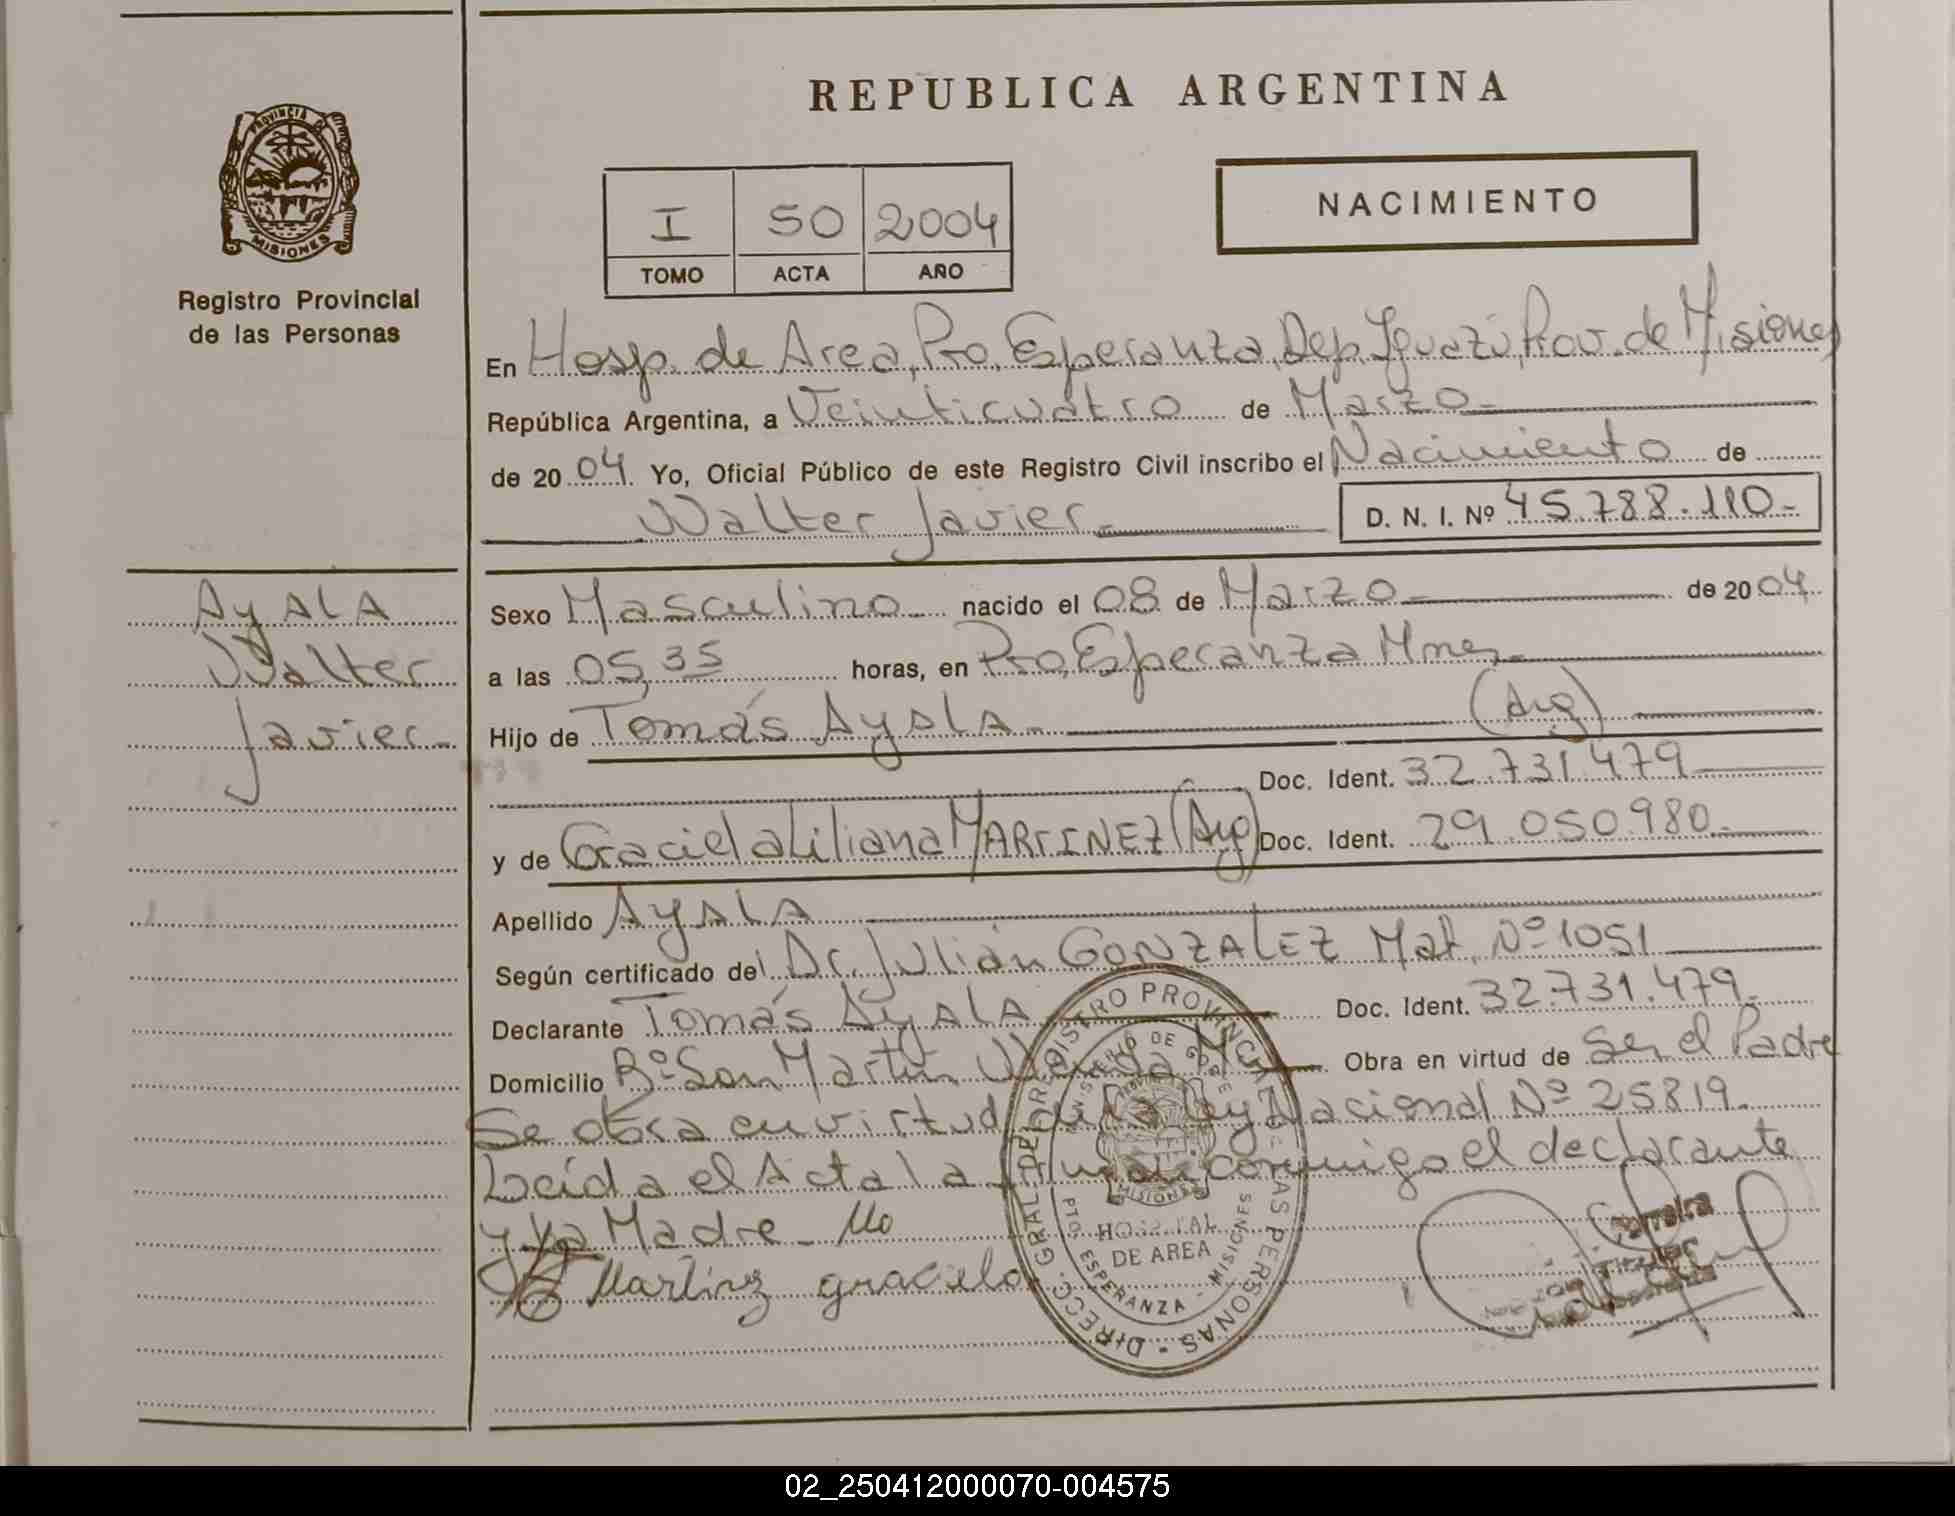 REPUBLICA ARGENTINA
PROVINCIA DE
MISIONES
Registro Provincial
de las Personas
I 50 2004
TOMO ACTA AÑO
NACIMIENTO
En Hosp. de Area, Pto. Esperanza, Dep. Iguazú, Prov. de Misiones
República Argentina, a Veinticuatro de Marzo
de 2004 Yo, Oficial Público de este Registro Civil inscribo el Nacimiento de
Walter Javier D. N. I. Nº 45.788.110
Ayala
Walter
Javier
Sexo Masculino nacido el 08 de Marzo de 2004
a las 05,35 horas, en Pto. Esperanza Mnes
Hijo de Tomás Ayala (Arg)
Doc. Ident. 32.731.479
y de Graciela Liliana MARTINEZ (Arg) Doc. Ident. 29.050.980
Apellido Ayala
Según certificado del Dr. Julián GONZALEZ Mat. Nº 1051
Declarante Tomás Ayala Doc. Ident. 32.731.479
Domicilio Bº San Martín Vivienda Obra en virtud de Ser el Padre
Se obra en virtud de la Ley Nacional Nº 25819
Leída el Acta la firman conmigo el declarante
y la Madre
Martinez graciela
DIRECC. GRAL. DEL REGISTRO PROVINCIAL DE LAS PERSONAS
MINISTERIO DE GOBIERNO
MISIONES
HOSPITAL
DE AREA
PTO. ESPERANZA - MISIONES
02_250412000070-004575